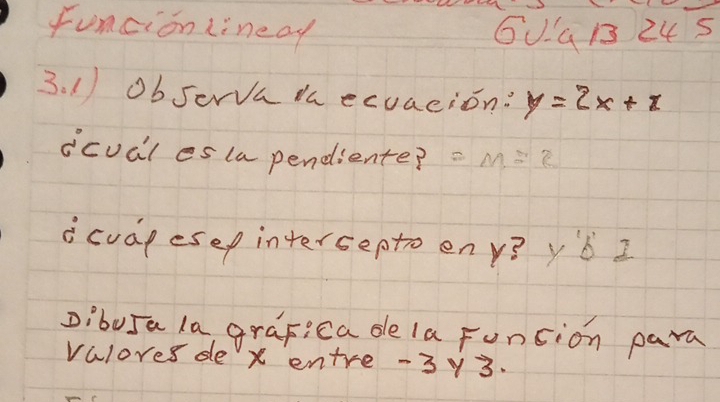 Función lineal
Guía 13 24 5
3.1) Observa la ecuación: y = 2x + 1
¿cuál es la pendiente? = m = 2
¿cuál es el intercepto en y? y b 1
Dibuja la gráfica de la Función para
valores de x entre -3 y 3.